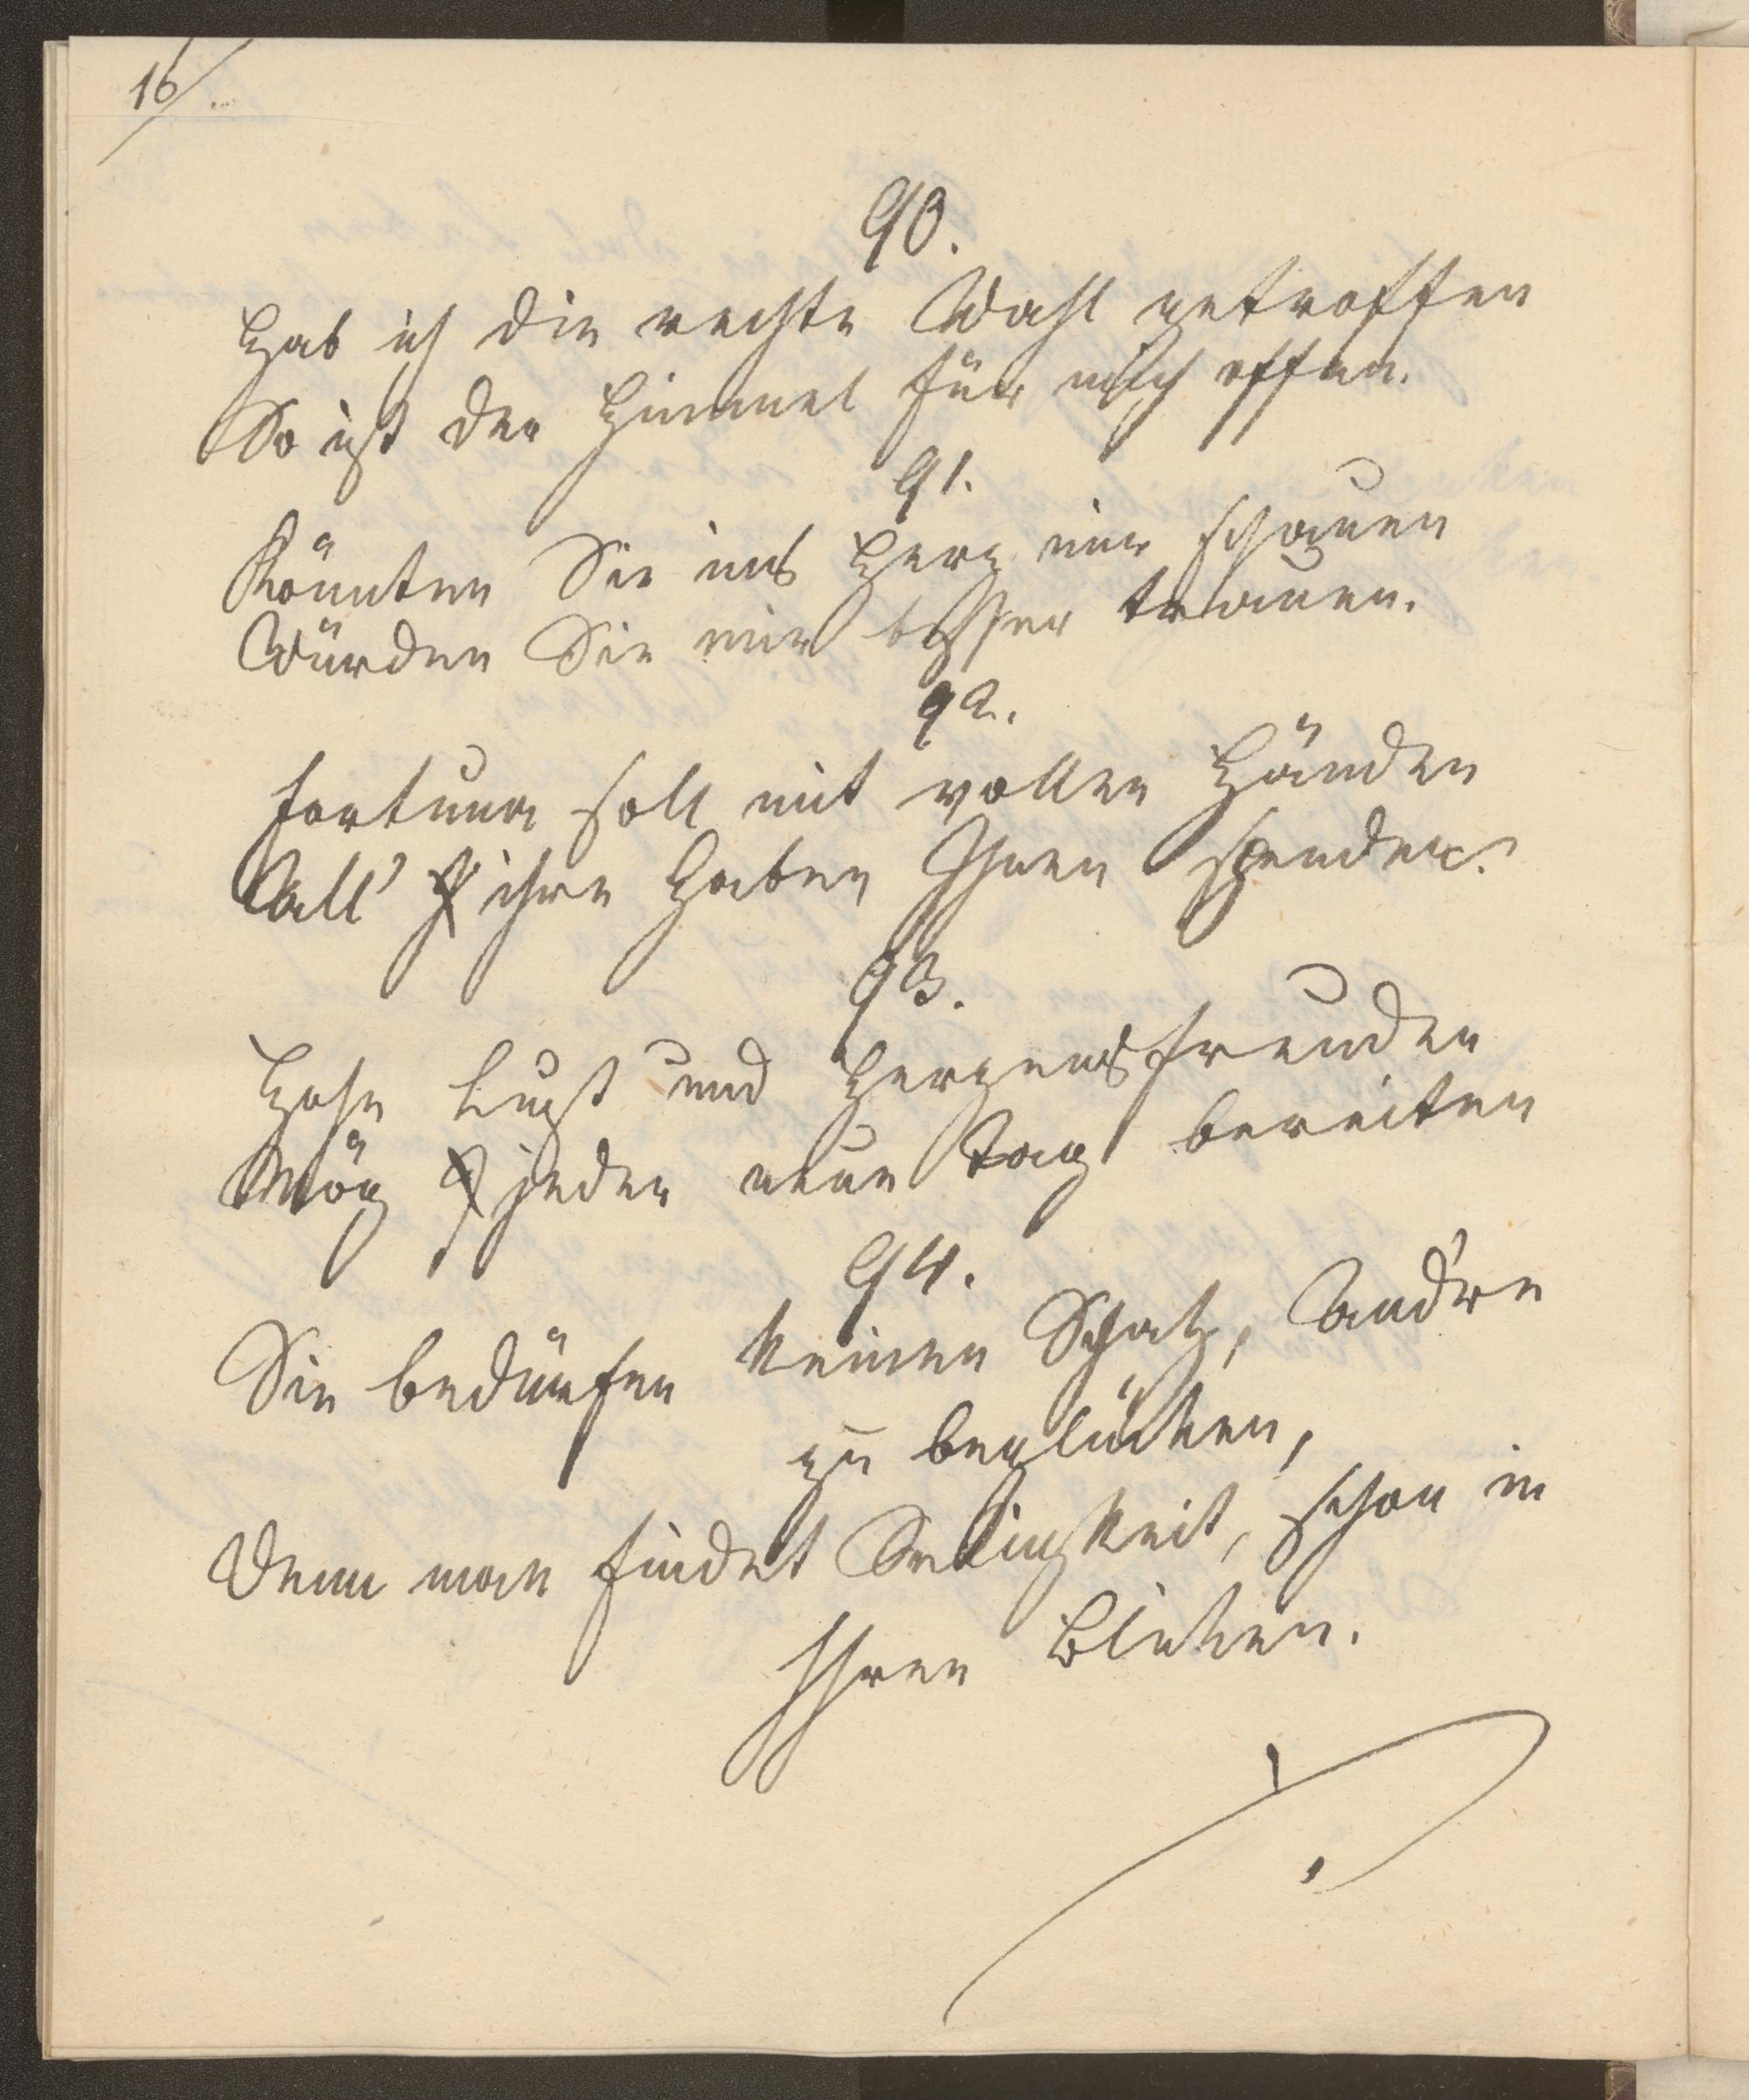 16/
90.
Hab ich die rechte Wahl getroffen
So ist der Himmel für mich offen.
91.
Könnten Sie ins Herz mir schauen
Würden Sie mir besser trauen.
92.
Fortuna soll mit vollen Händen
All' ihre Gaben Ihnen spenden.
93.
Hohe Lust und Herzensfreuden
Mög jeder neue Tag bereiten
94.
Sie bedürfen keinen Schatz, And're
zu beglücken,
Denn man findet Seeligkeit, schon in
Ihren Blicken.